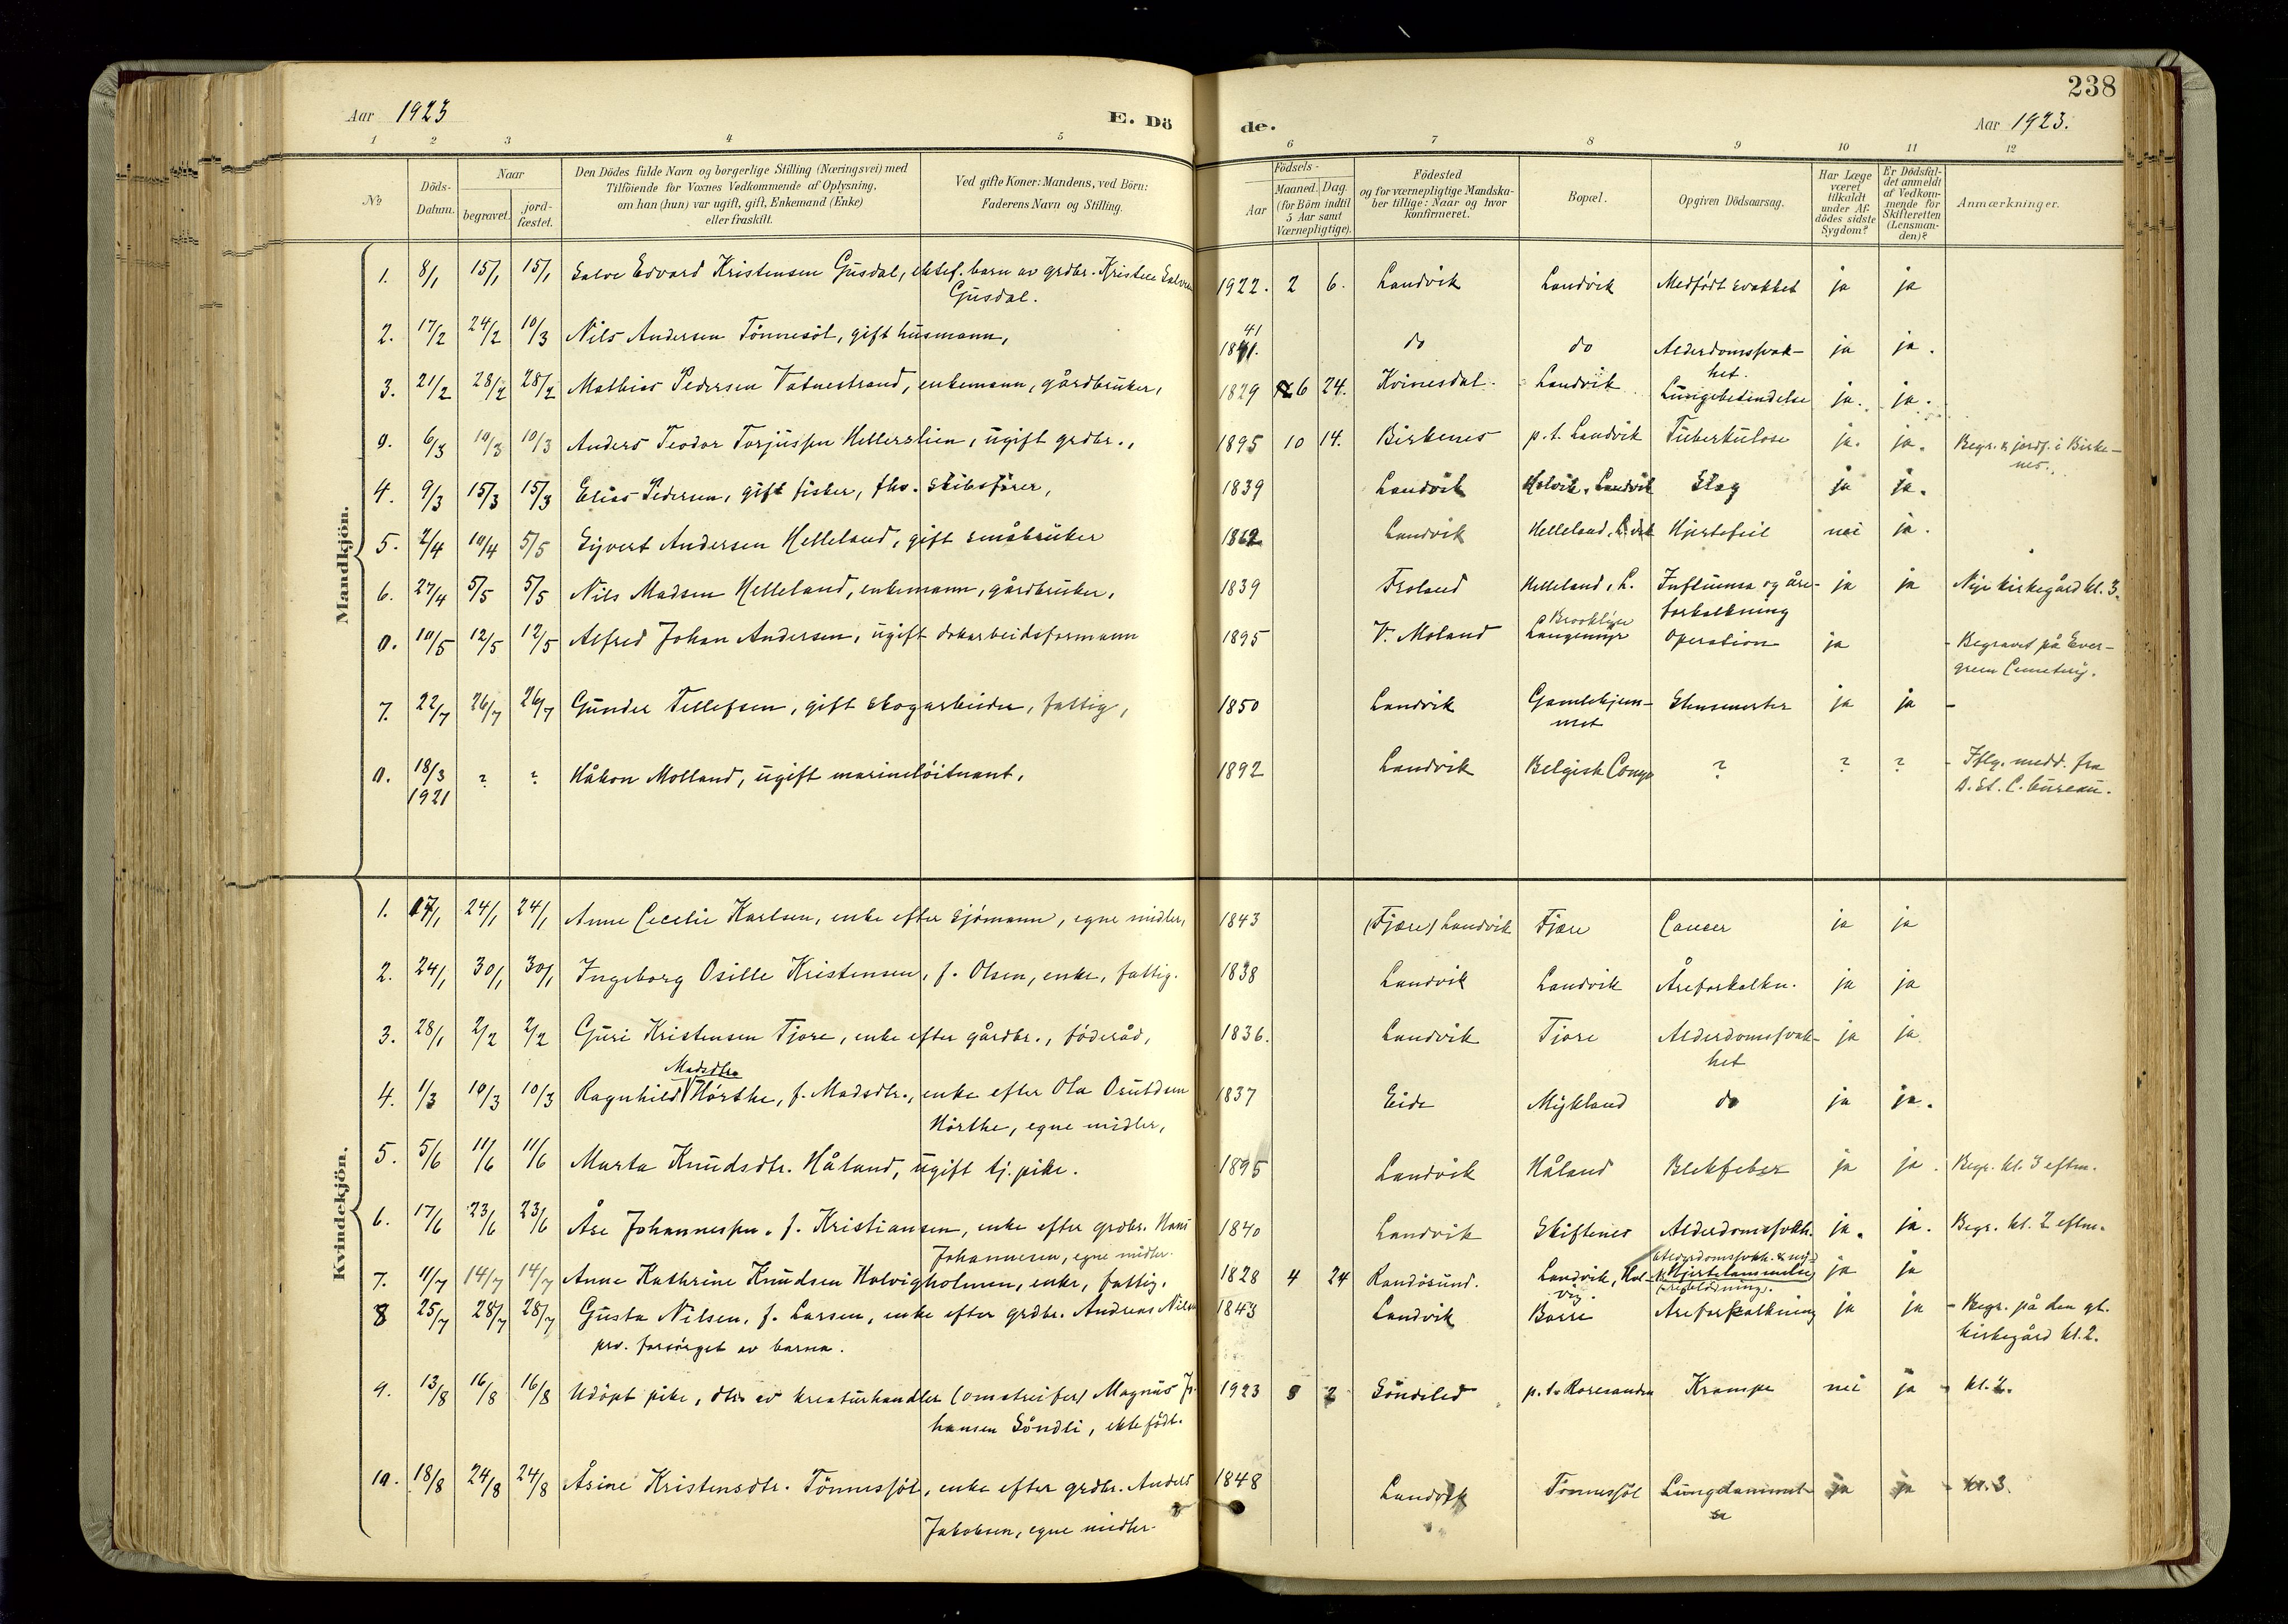 238
Aar 1923 E. Dö de. Aar 1923.
1 2 3 4 5 6 7 8 9 10 11 12
No
Döds-Datum.
Naar
begravet.
jordfæstet.
Den Dödes fulde Navn og borgerlige Stilling (Næringsvei) med
Tilföiende for Voxnes Vedkommende af Oplysning,
om han (hun) var ugift, gift, Enkemand (Enke)
eller fraskilt.
Ved gifte Koner: Mandens, ved Börn:
Faderens Navn og Stilling.
Födsels-
Aar
Maaned. Dag.
(for Börn indtil
5 Aar samt
Værnepligtige).
Födested
og for værnepligtige Mandska-
ber tillige: Naar og hvor
konfirmeret.
Bopæl.
Opgiven Dödsaarsag.
Har Læge
været
tilkaldt
under Af-
dödes sidste
Sygdom?
Er Dödsfal-
det anmeldt
af Vedkom-
mende for
Skifteretten
(Lensman-
den)?
Anmærkninger.
Mandkjön.
1. 8/1 15/1 15/1 Salve Edvard Kristensen Gusdal, ektef. barn av grdbr. Kristen Salvesen 1922. 2 6. Landvik Landvik Medfödt svakket ja ja
Gusdal.
2. 17/2 24/2 10/3 Nils Andersen Tönnesöl, gift husmann, 1841. do do Alderdomssvak- ja ja.
41
het.
3. 21/2 28/2 28/2 Mathias Pedersen Vatnestrand, enkemann, gårdbruker, 1829 6 24. Kvinesdal. Landvik Lungebetendelse ja. ja.
0. 6/3 10/3 10/3 Anders Teodor Torjussen Hellerslien, ugift grdbr., 1895 10 14. Birkenes p.t. Landvik Tuberkulose ja. ja. Begr. & jordf. i Birke-
nes.
4. 9/3 15/3 15/3 Elias Pedersen, gift fisker, fhv. skibsförer, 1839 Landvik Holvik, Landvik Slag ja ja.
5. 2/4 10/4 5/5 Syvert Andersen Helleland, gift småbruker 1862 Landvik Helleland, L.vik Hjertefeil nei ja.
6. 27/4 5/5 5/5 Nils Madsen Helleland, enkemann, gårdbruker, 1839 Froland Helleland, L. Influensa og åre- ja ja Nye kirkegård kl. 3.
forkalkning
0. 10/5 12/5 12/5 Alfred Johan Andersen, ugift dokarbeidsformann 1895 V. Moland Langemyr Operation ja - Begravet på Ever-
Brooklyn
green Cemetery.
7. 22/7 26/7 26/7 Gunder Tellefsen, gift skogarbeider, fattig, 1850 Landvik Gamlehjem- Stensmerter ja ja -
met
0. 18/3 ? ? Håkon Molland, ugift marinelöitnant, 1892 Landvik Belgisk Congo ? ? ? - Iflg. medd. fra
1921 D. St. C. bureau.
Kvindekjön.
1. 17/1 24/1 24/1 Anne Cecelie Karlsen, enke efter sjömann, egne midler, 1843 (Fjære) Landvik Fjære Cancer ja ja
2. 24/1 30/1 30/1 Ingeborg Osille Kristensen, f. Olsen, enke, fattig. 1838 Landvik Landvik Åreforkalkn. ja ja
3. 28/1 2/2 2/2 Guri Kristensen Tjore, enke efter gårdbr., föderåd, 1836. Landvik Tjore Alderdomssvak- ja ja
het
Madsdtr.
4. 1/3 10/3 10/3 Ragnhild Hörthe, f. Madsdtr., enke efter Ola Osuldsen 1837 Eide Mykland do ja ja.
Hörthe, egne midler,
5. 5/6 11/6 11/6 Marta Knudsdtr. Håland, ugift tj. pike. 1895 Landvik Håland Blekfeber ja ja. Begr. kl. 3 eftm.
6. 17/6 23/6 23/6 Åse Johannessen, f. Kristiansen, enke efter grdbr. Hans 1840 Landvik Skiftenes Alderdomssvakh. ja. ja. Begr. kl. 2 eftm.
Johannesen, egne midler.
7. 11/7 14/7 14/7 Anne Kathrine Knudsen Holvigholmen, enke, fattig. 1828 4 24 Randösund. Landvik, Hol- Hjertelammelse ja ja
vig.
8 25/7 28/7 28/7 Gusta Nilsen, f. Larsen, enke efter grdbr. Andreas Nilsen 1843 Landvik Borre Åreforkalkning ja ja - Begr. på den gl.
prv. forsörget av barna. kirkegård kl. 2.
9. 13/8 16/8 16/8 Udöpt pike, dtr. av kreaturhandler (omstreifer) Magnus Jo- 1923 8 2 Söndeled p.t. Roresanden Krampe nei ja - kl. 2.
hansen Söndli, ekte födt.
10. 18/8 24/8 24/8 Åsine Kristensdtr. Tönnesöl, enke efter grdbr. Anders 1848 Landvik Tönnesöl Lungelammel- ja ja - kl. 3.
se
Jakobsen, egne midler.